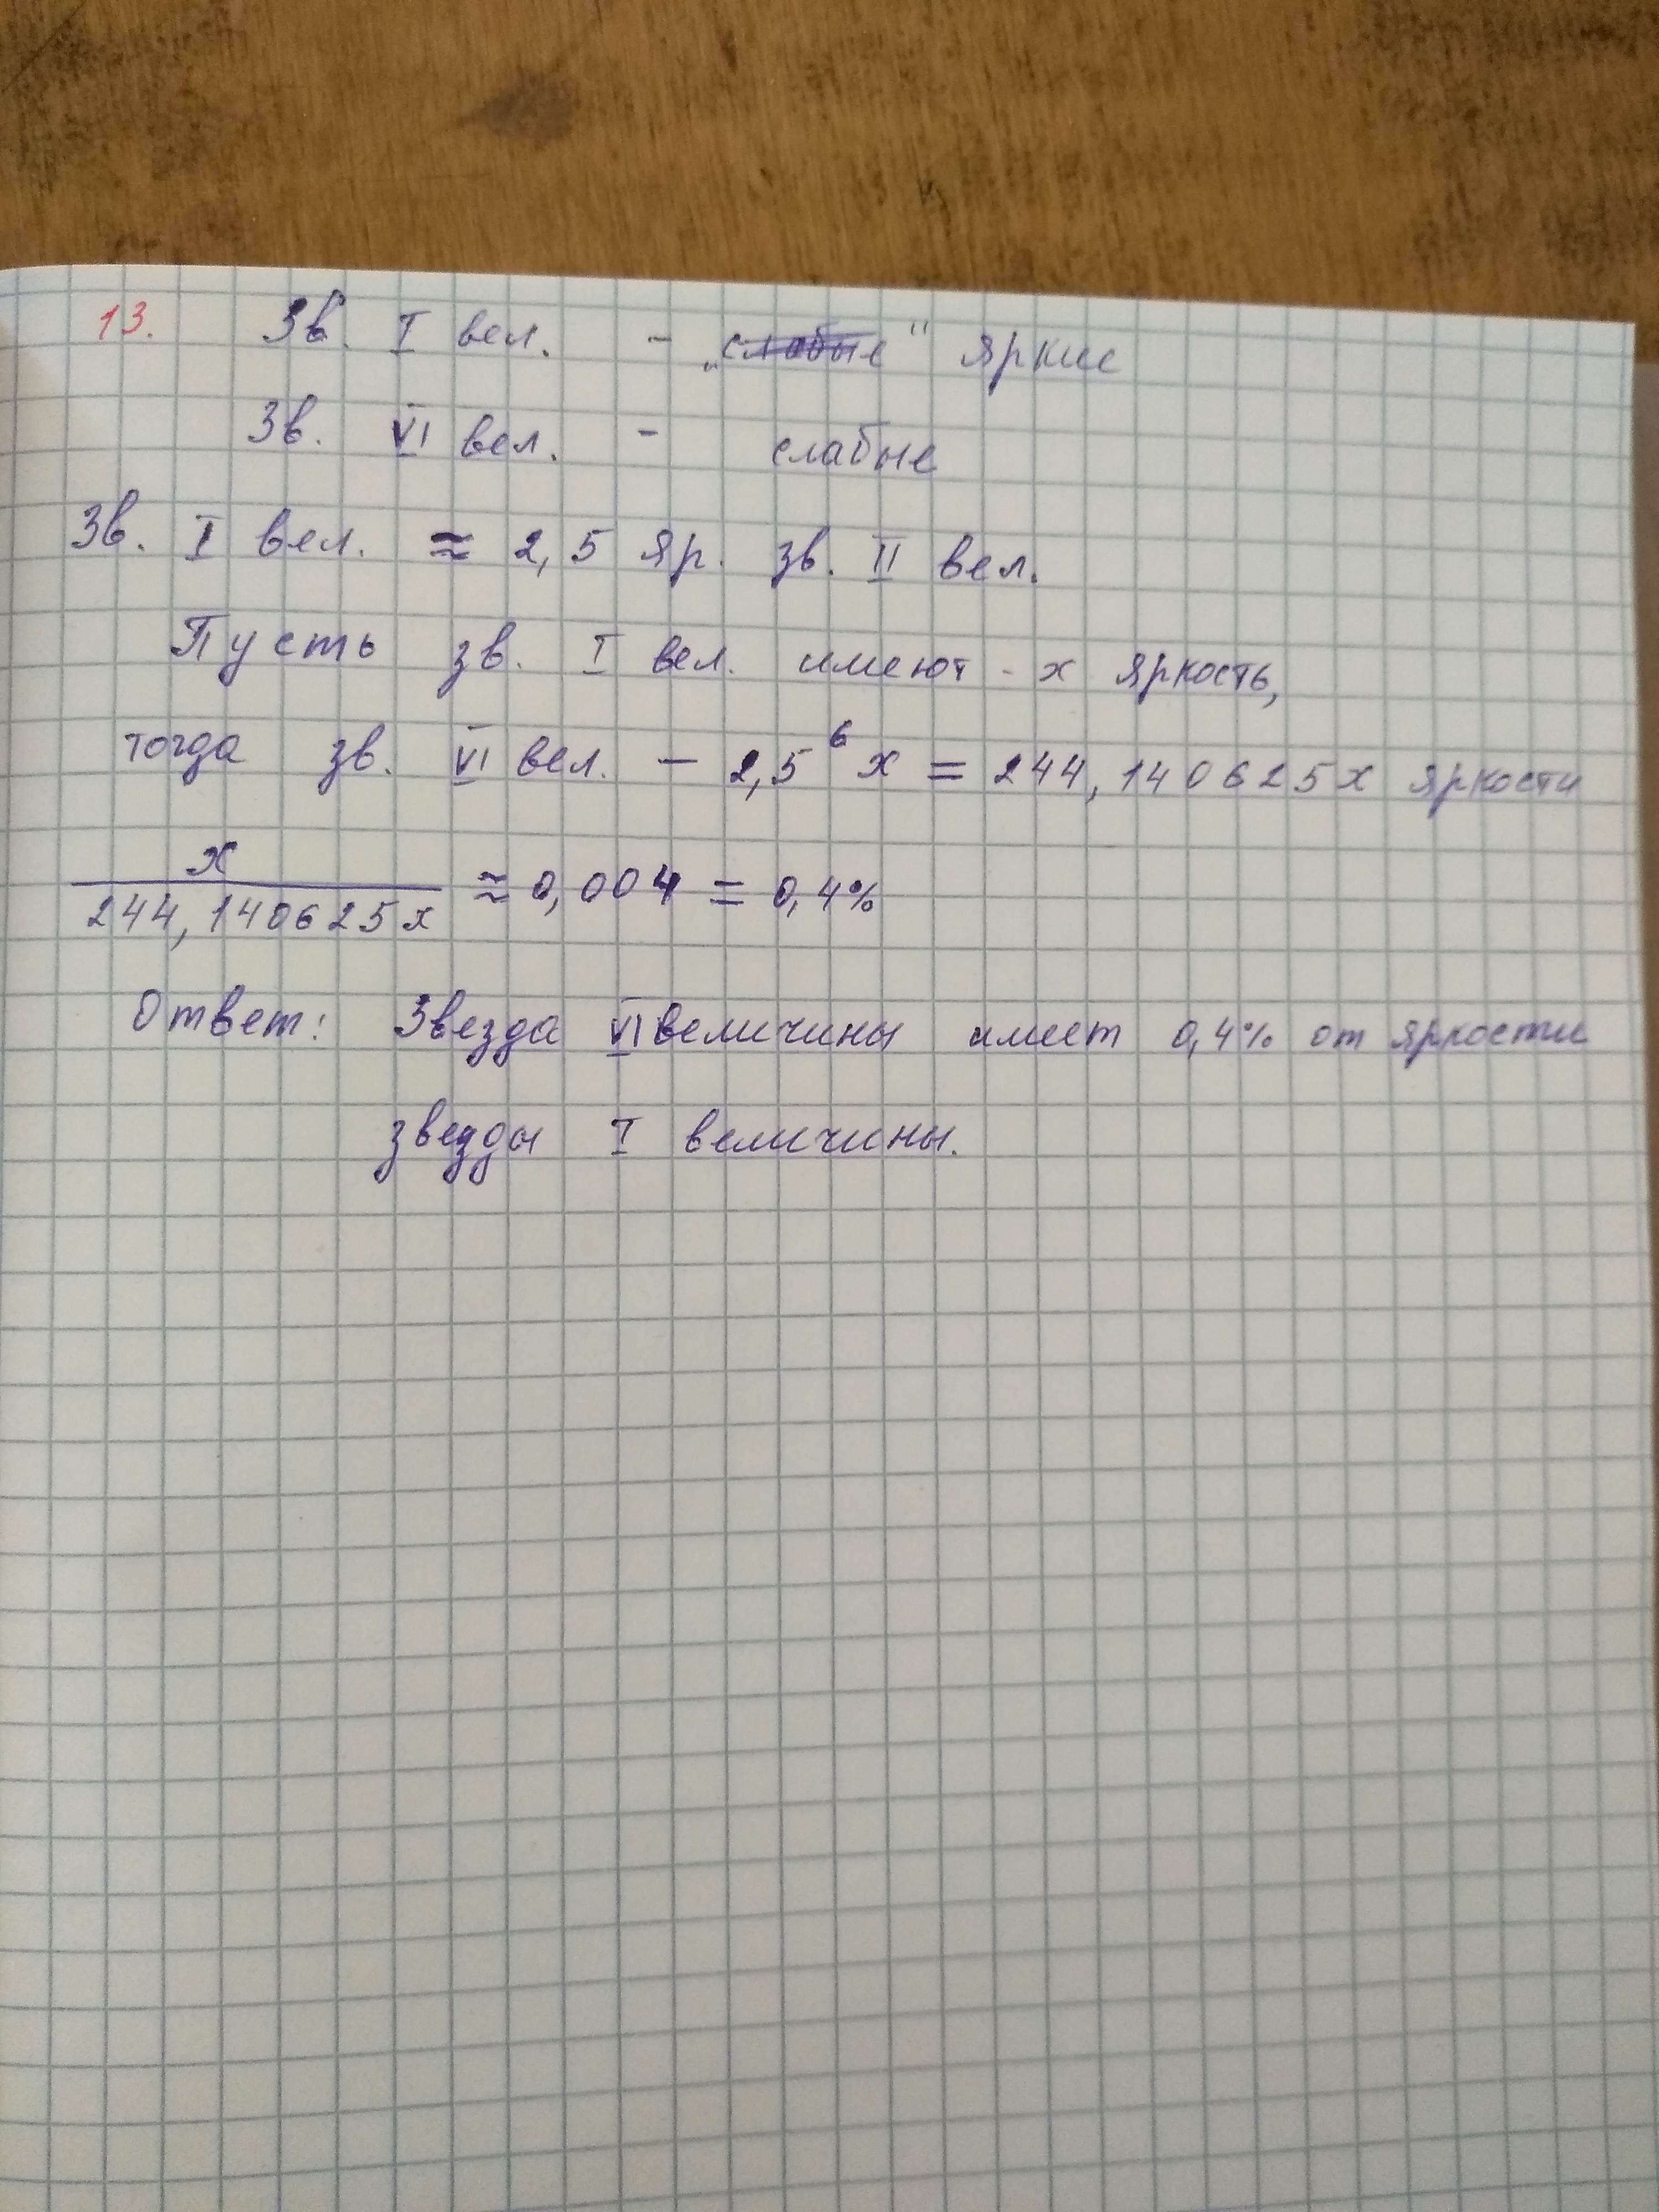 13. Зв. I вел. - „слабые" яркие
Зв. VI вел. - слабые
Зв. I вел. ≈ 2,5 яр. зв. II вел.
Пусть зв. I вел. имеют - x яркость,
тогда зв. VI вел. - 2,5⁶x = 244,140625x яркости
x / 244,140625x ≈ 0,004 = 0,4%
Ответ: Звезда VI величины имеет 0,4% от яркости
звезды I величины.